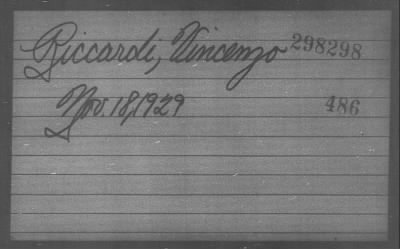 Riccardi, Vincenzo 298298
Nov. 18, 1929 486